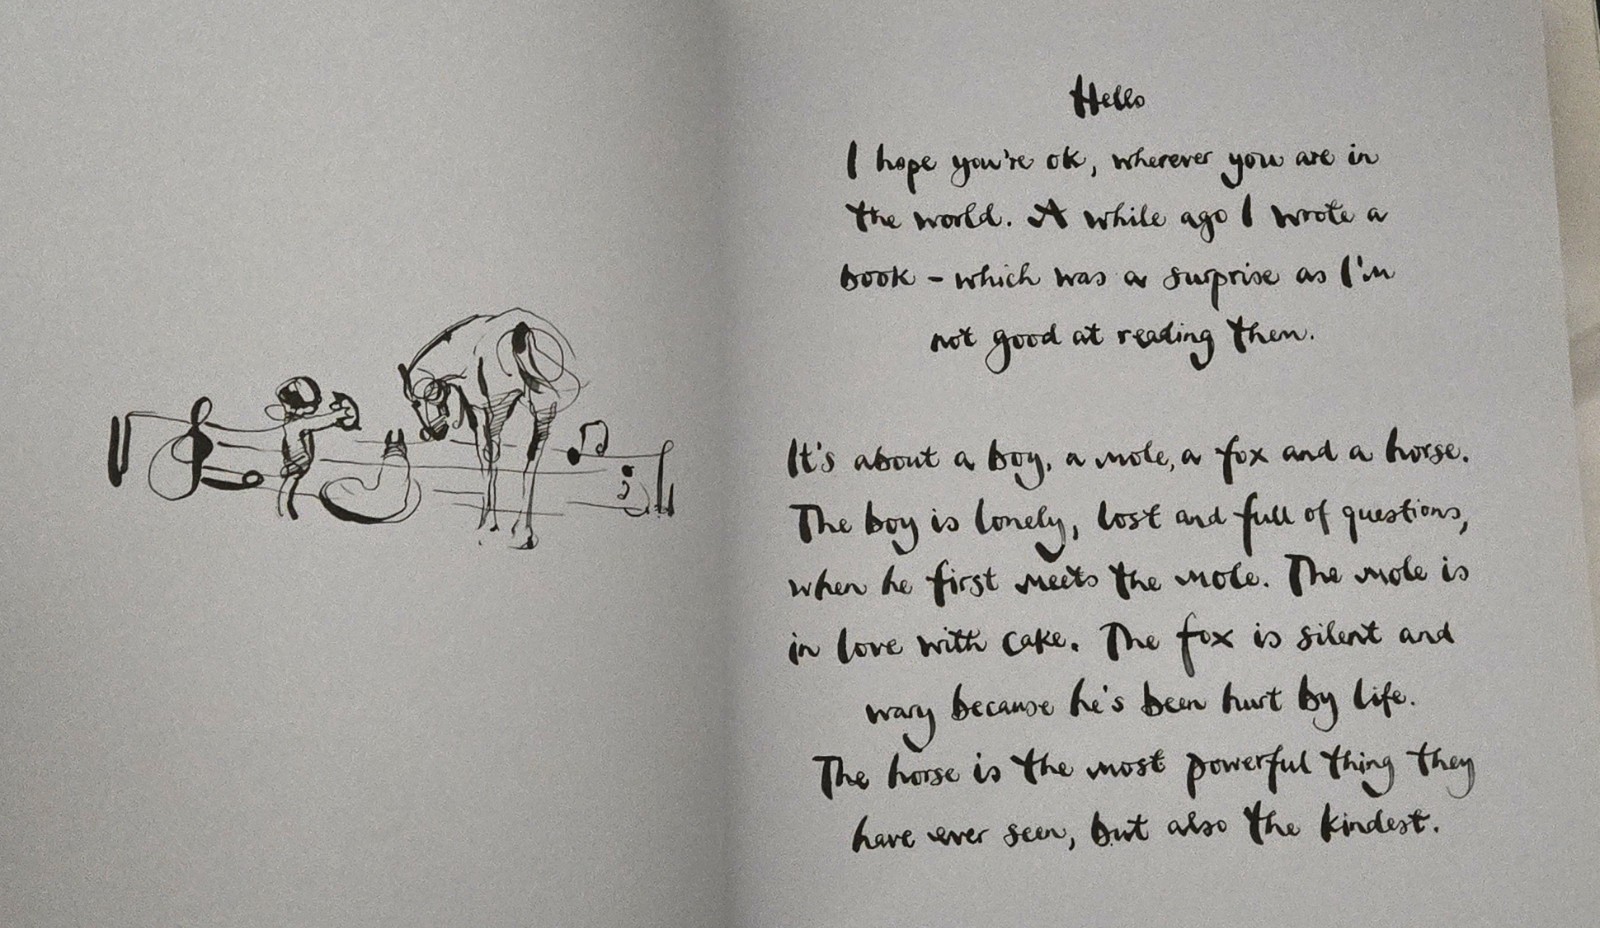 Hello
I hope you're ok, wherever you are in
the world. A while ago I wrote a
book - which was a surprise as I'm
not good at reading them.
It's about a boy, a mole, a fox and a horse.
The boy is lonely, lost and full of questions,
when he first meets the mole. The mole is
in love with cake. The fox is silent and
wary because he's been hurt by life.
The horse is the most powerful thing they
have ever seen, but also the kindest.